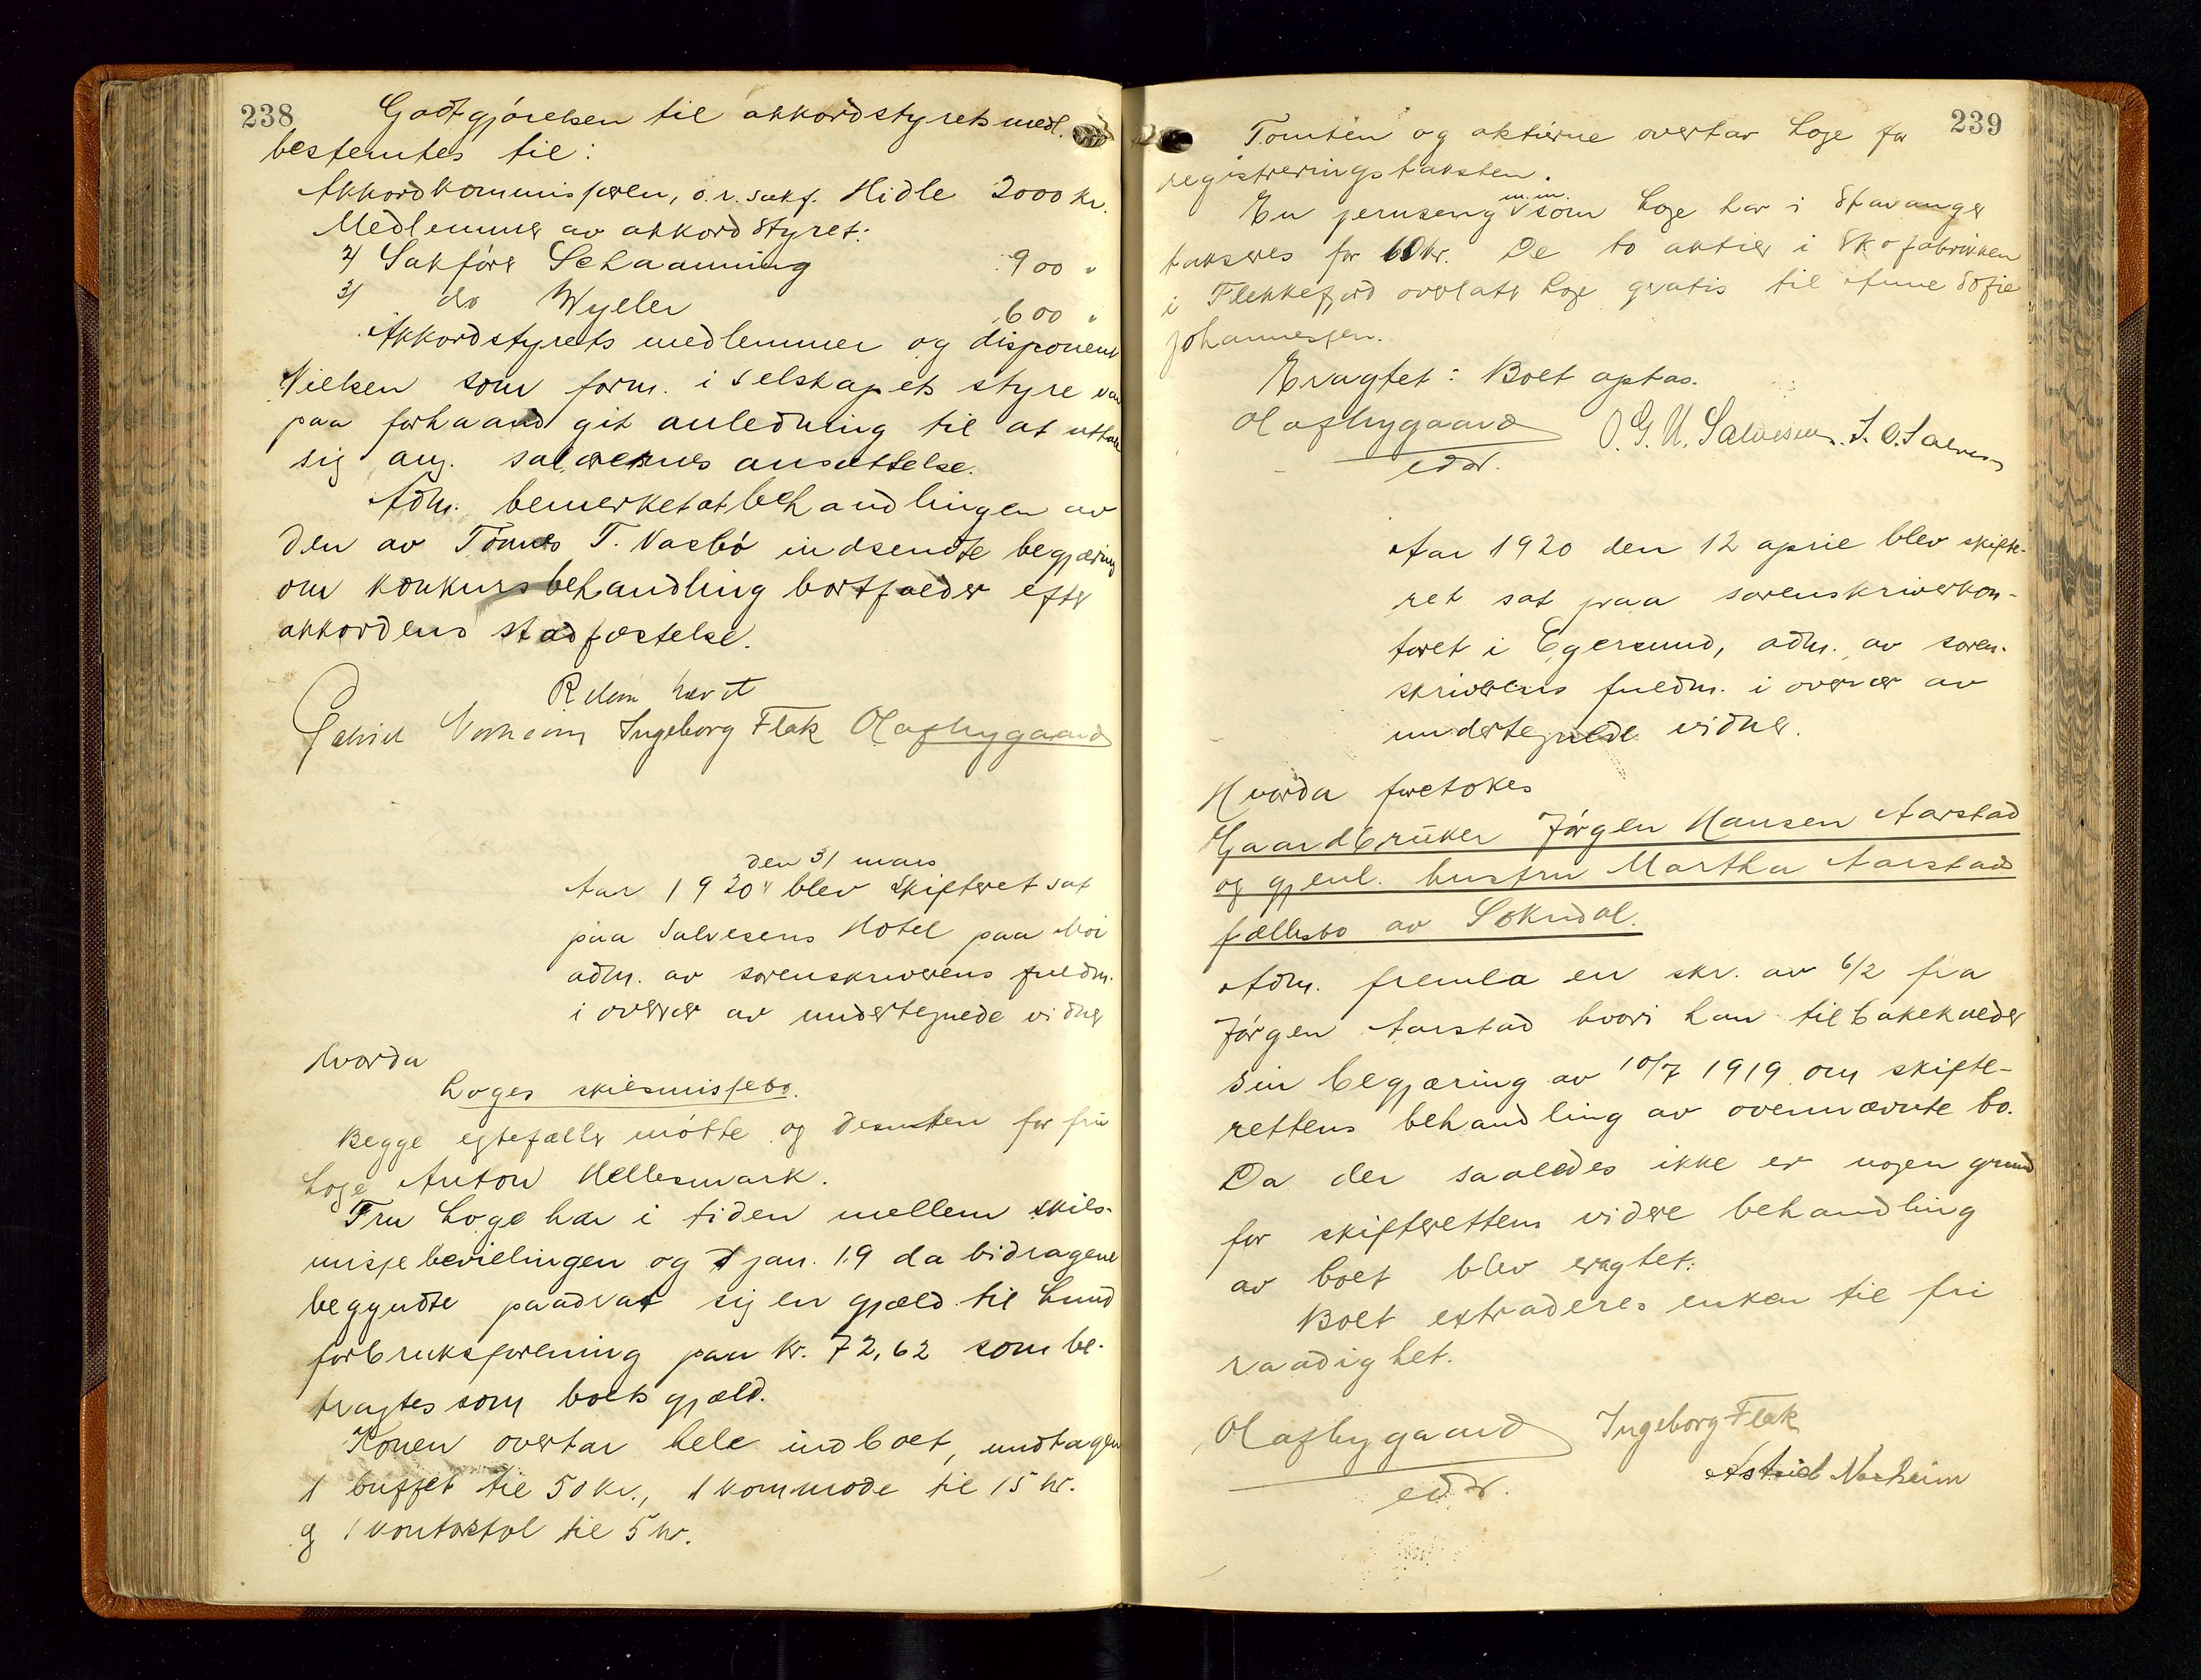 238
Godtgjörelsen til akkordstyrets medl.
bestemtes til:
Akkordkommissæren, o.r.sakf. Hidle 2000 kr.
Medlemmer av akkordstyret:
2/ Sakförer Schaanning 900 "
3/ do Wyller 600 "
Akkordstyrets medlemmer og disponent
Nielsen som form. i selskapets styre var
paa forhaand git anledning til at uttale
sig ang. salærernes ansættelse.
Adm. bemerket at behandlingen av
den av Tönnes T. Vasbö indsendte begjæring
om konkursbehandling bortfalder efter
akkordens stadfæstelse.
Rettem hævet
Astrid Norheim Ingeborg Flak Olaf Nygaard
den 31 mars
Aar 1920 v blev skifteret sat
paa Salvesens Hotel paa Moi
adm. av sorenskriverens fuldm.
i overvær av undertegnede vidner
hvorda
Loges skilsmissebo.
Begge egtefæller mötte og desuten for fru
Loge Anton Hellesmark.
Fru Loge har i tiden mellem skils-
missebevilingen og 1 jan. 19 da bidragene
begyndte paadrat sig en gjæld til Lund
forbruksforening paa kr. 72,62 som be-
tragtes som boets gjæld.
Konen overtar hele indboet, undtagen
1 buffet til 50 kr., 1 kommode til 15 kr.
og 1 kontorstol til 5 kr.
239
Tomten og aktierne overtar Loge for
registreringstaksten.
En jernseng v m.m. som Loge har i Stavanger
takseres for 60 kr. De to aktier i Skofabrikken
i Flekkefjord overlater Loge gratis til Anne Sofie
Johannessen.
Eragtet: Boet optas.
Olaf Nygaard O. G. U. Salvesen. S. O. Salvesen
edr.
Aar 1920 den 12 april blev skifte-
ret sat paa sorenskriverkon-
toret i Egersund, adm. av soren-
skriverens fuldm. i overvær av
undertegnede vidner.
Hvorda foretokes
Gaardbruker Jörgen Hansen Aarstad
og gjenl. hustru Martha Aarstad
fællesbo av Sokndal.
Adm. fremla en skr. av 6/2 fra
Jörgen Aarstad hvori han tilbakekalder
sin begjæring av 10/7 1919 om skifte-
rettens behandling av ovennævnte bo.
Da der saaledes ikke er nogen grund
for skifterettens videre behandling
av boet blev eragtet:
Boet extraderes enken til fri
raadighet.
Olaf Nygaard Ingeborg Flak
edr. Astrid Norheim